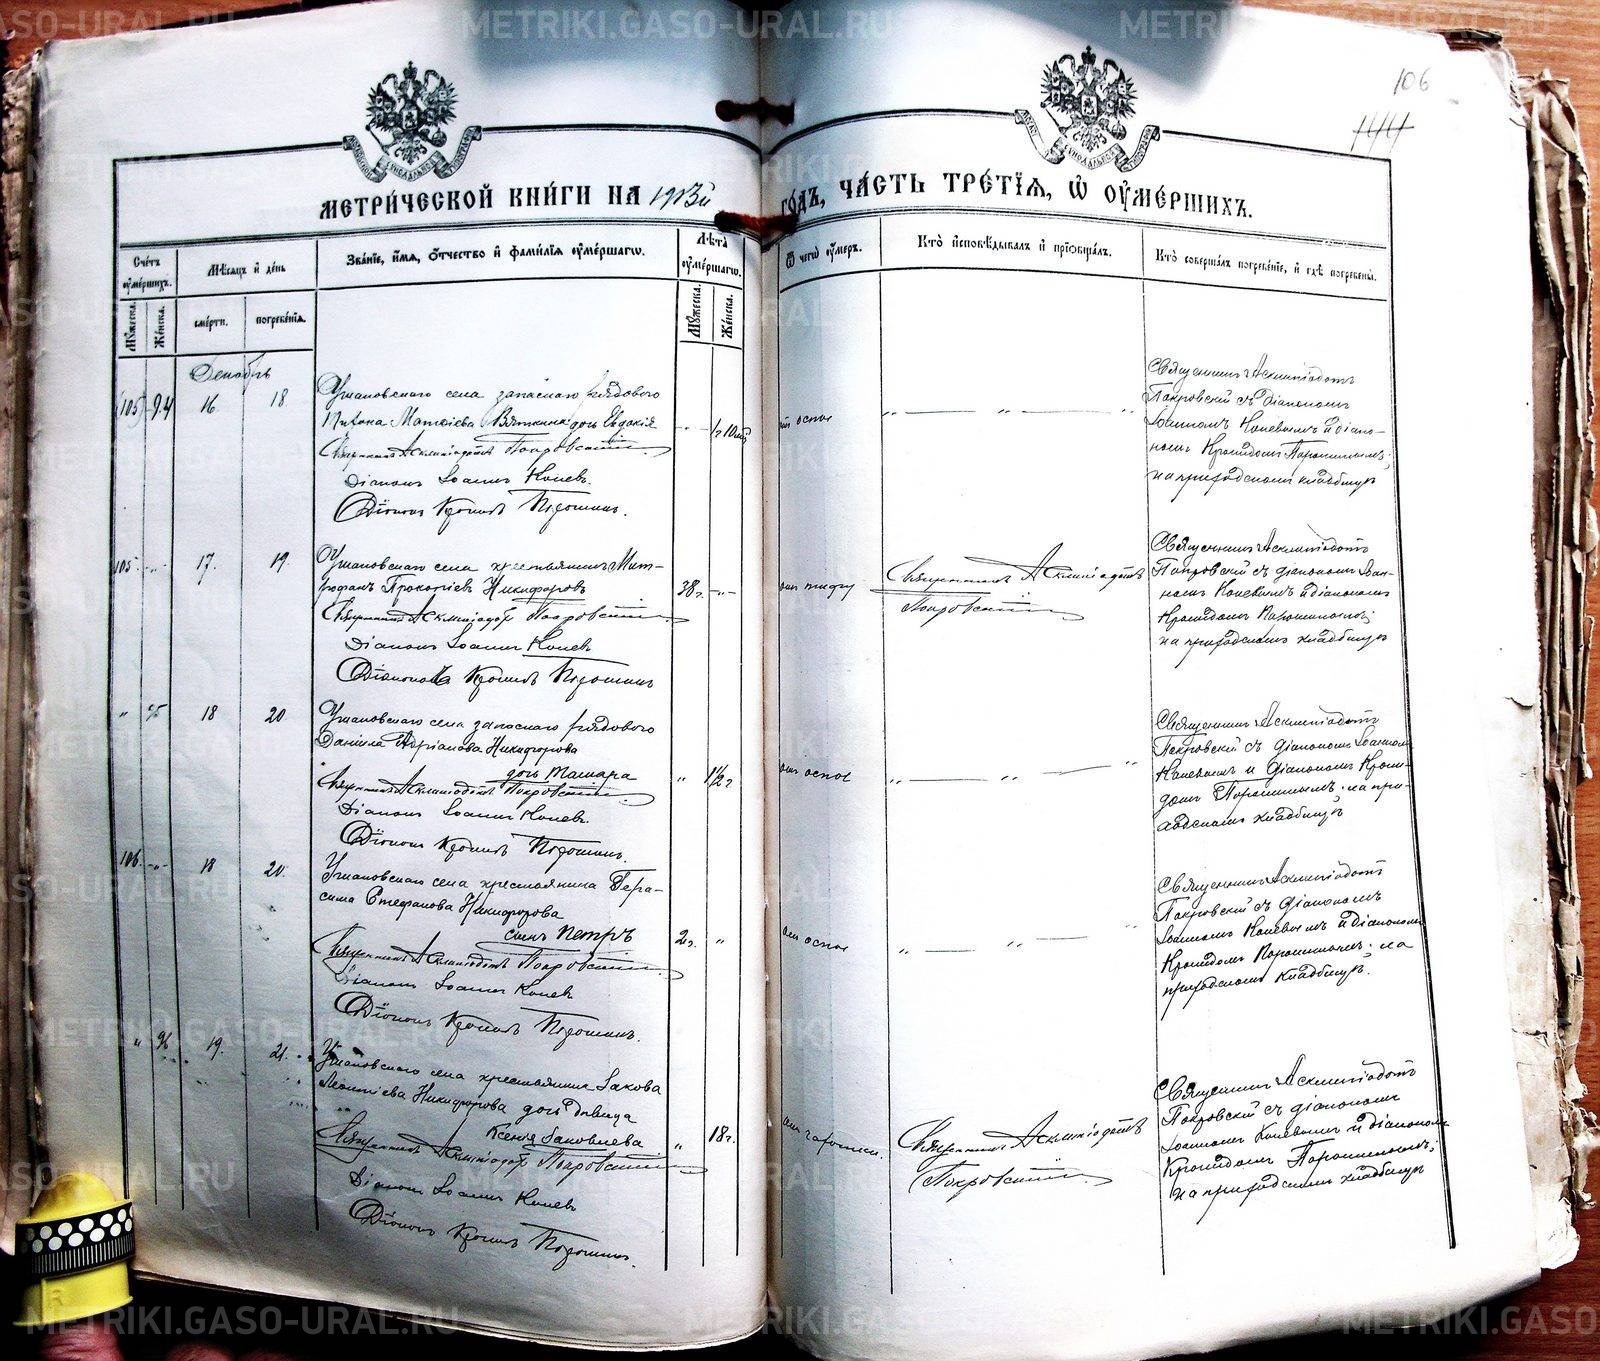 106
144
МЕТРИ́ЧЕСКОЙ КНИ́ГИ НА 1913й
ГО́ДЪ, ЧА́СТЬ ТРЕ́ТЇЯ, Ѽ ОУ҆МЕ́РШИХЪ.
Сче́тъ оу҆ме́ршихъ.
Мѣ́сяцъ и҆ де́нь
Зва́нїе, и҆́мя, ѻ҆́тчество и҆ фами́лїя оу҆ме́ршагѡ.
Лѣ́та оу҆ме́ршагѡ.
Ѿ чегѡ̀ оу҆́меръ.
Кто̀ и҆сповѣ́дывалъ и҆ прїѡбща́лъ.
Кто̀ соверша́лъ погребе́нїе, и҆ гдѣ̀ погребены̀.
Мꙋ́жеска.
Же́нска.
сме́рти.
погребе́нїя.
Мꙋ́жеска.
Же́нска.
Декабрь
94
16
18
села запаснаго рядового
Вяткина дочь Евдокія
Священникъ Асклипіодотъ Покровскій
Діаконъ Іоаннъ Коневъ.
Діаконъ Кронидъ Порошинъ.
оспы
Священникъ Асклипіодотъ
Покровскій съ діакономъ
Іоанномъ Коневымъ и діако-
номъ Кронидомъ Порошинымъ;
на приходскомъ кладбищѣ
105
17.
19.
села крестьянинъ Мит-
рофанъ Прокопіевъ Никифоровъ
Священникъ Асклипіодотъ Покровскій
Діаконъ Іоаннъ Коневъ
Діаконъ Кронидъ Порошинъ
38 г.
отъ тифу
Священникъ Асклипіодотъ
Покровскій
Священникъ Асклипіодотъ
Покровскій съ діакономъ Іоан-
номъ Коневымъ и діакономъ
Кронидомъ Порошинымъ;
на приходскомъ кладбищѣ
95
18
20
села запаснаго рядового
Даніила Адріанова Никифорова
дочь Тамара
Священникъ Асклипіодотъ Покровскій
Діаконъ Іоаннъ Коневъ.
Діаконъ Кронидъ Порошинъ.
1½ г
отъ оспы
Священникъ Асклипіодотъ
Покровскій съ діакономъ Іоанномъ
Коневымъ и діакономъ Крони-
домъ Порошинымъ; на при-
ходскомъ кладбищѣ
106.
18
20.
села крестьянина Гера-
сима Стефанова Никифорова
сынъ Петръ
Священникъ Асклипіодотъ Покровскій
Діаконъ Іоаннъ Коневъ
Діаконъ Кронидъ Порошинъ.
2 г.
отъ оспы
Священникъ Асклипіодотъ
Покровскій съ діакономъ
Іоанномъ Коневымъ и діакономъ
Кронидомъ Порошинымъ; на
приходскомъ кладбищѣ.
96
19.
21.
села крестьянина Іакова
Леонтіева Никифорова дочь дѣвица
Ксенія Іаковлева
Священникъ Асклипіодотъ Покровскій
Діаконъ Іоаннъ Коневъ
Діаконъ Кронидъ Порошинъ.
18 г.
отъ чахотки.
Священникъ Асклипіодотъ
Покровскій
Священникъ Асклипіодотъ
Покровскій съ діакономъ
Іоанномъ Коневымъ и діакономъ
Кронидомъ Порошинымъ;
на приходскомъ кладбищѣ
METRIKI.GASO-URAL.RU